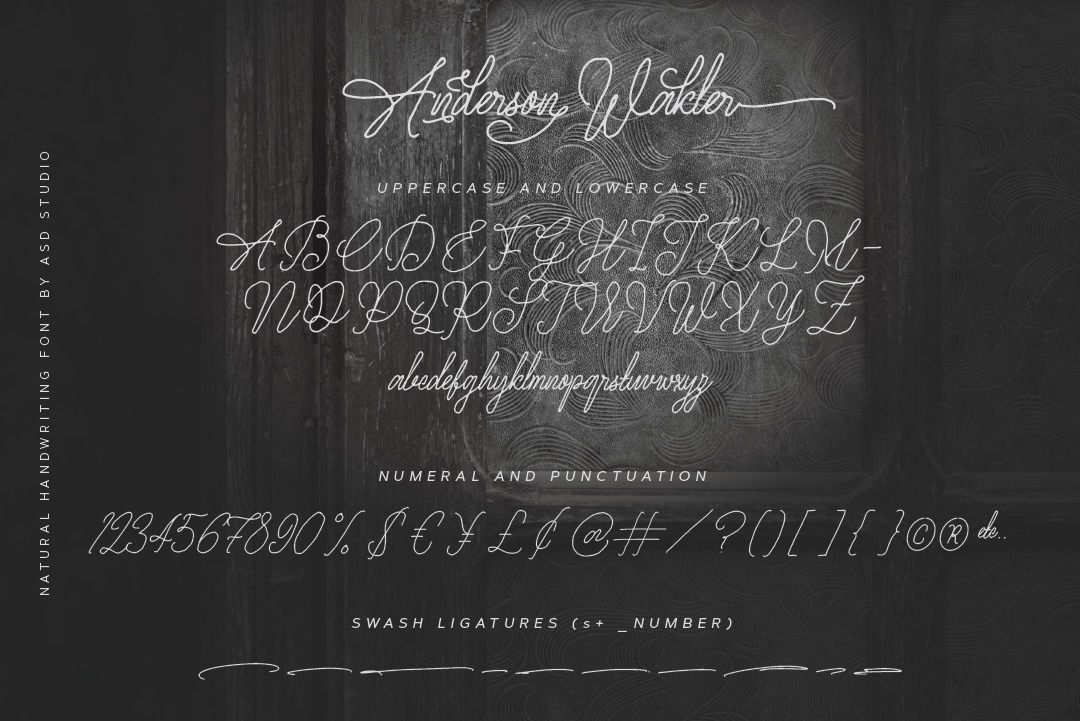 Anderson Winkler
UPPERCASE AND LOWERCASE
ABCDEFGHIJKLM-
NOPQRSTUVWXYZ
abcdefghyklmnopqrstuvwxyz
NUMERAL AND PUNCTUATION
1234567890% $ € ¥ £ ¢ @ # / ? ( ) [ ] { } © ® etc..
SWASH LIGATURES (s+ _NUMBER)
NATURAL HANDWRITING FONT BY ASD STUDIO